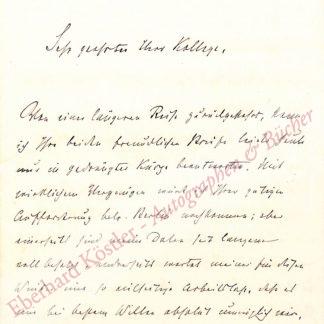 Sehr geehrter Herr Kollege,
Von einer längeren Reise zurückgekehrt, kann
ich Ihre beiden freundlichen Briefe leider heute
nur in gedrängter Kürze beantworten. Mit
wirklichem Vergnügen würde ich Ihrer gütigen
Aufforderung betr. nachkommen; aber
einerseits sind meine Daten seit langem
voll besetzt, anderseits wartet meiner für diesen
Winter eine so vielseitige Arbeitslast, daß es
mir bei bestem Willen absolut unmöglich wäre,
Eberhard Köstler - Autographen & Bücher